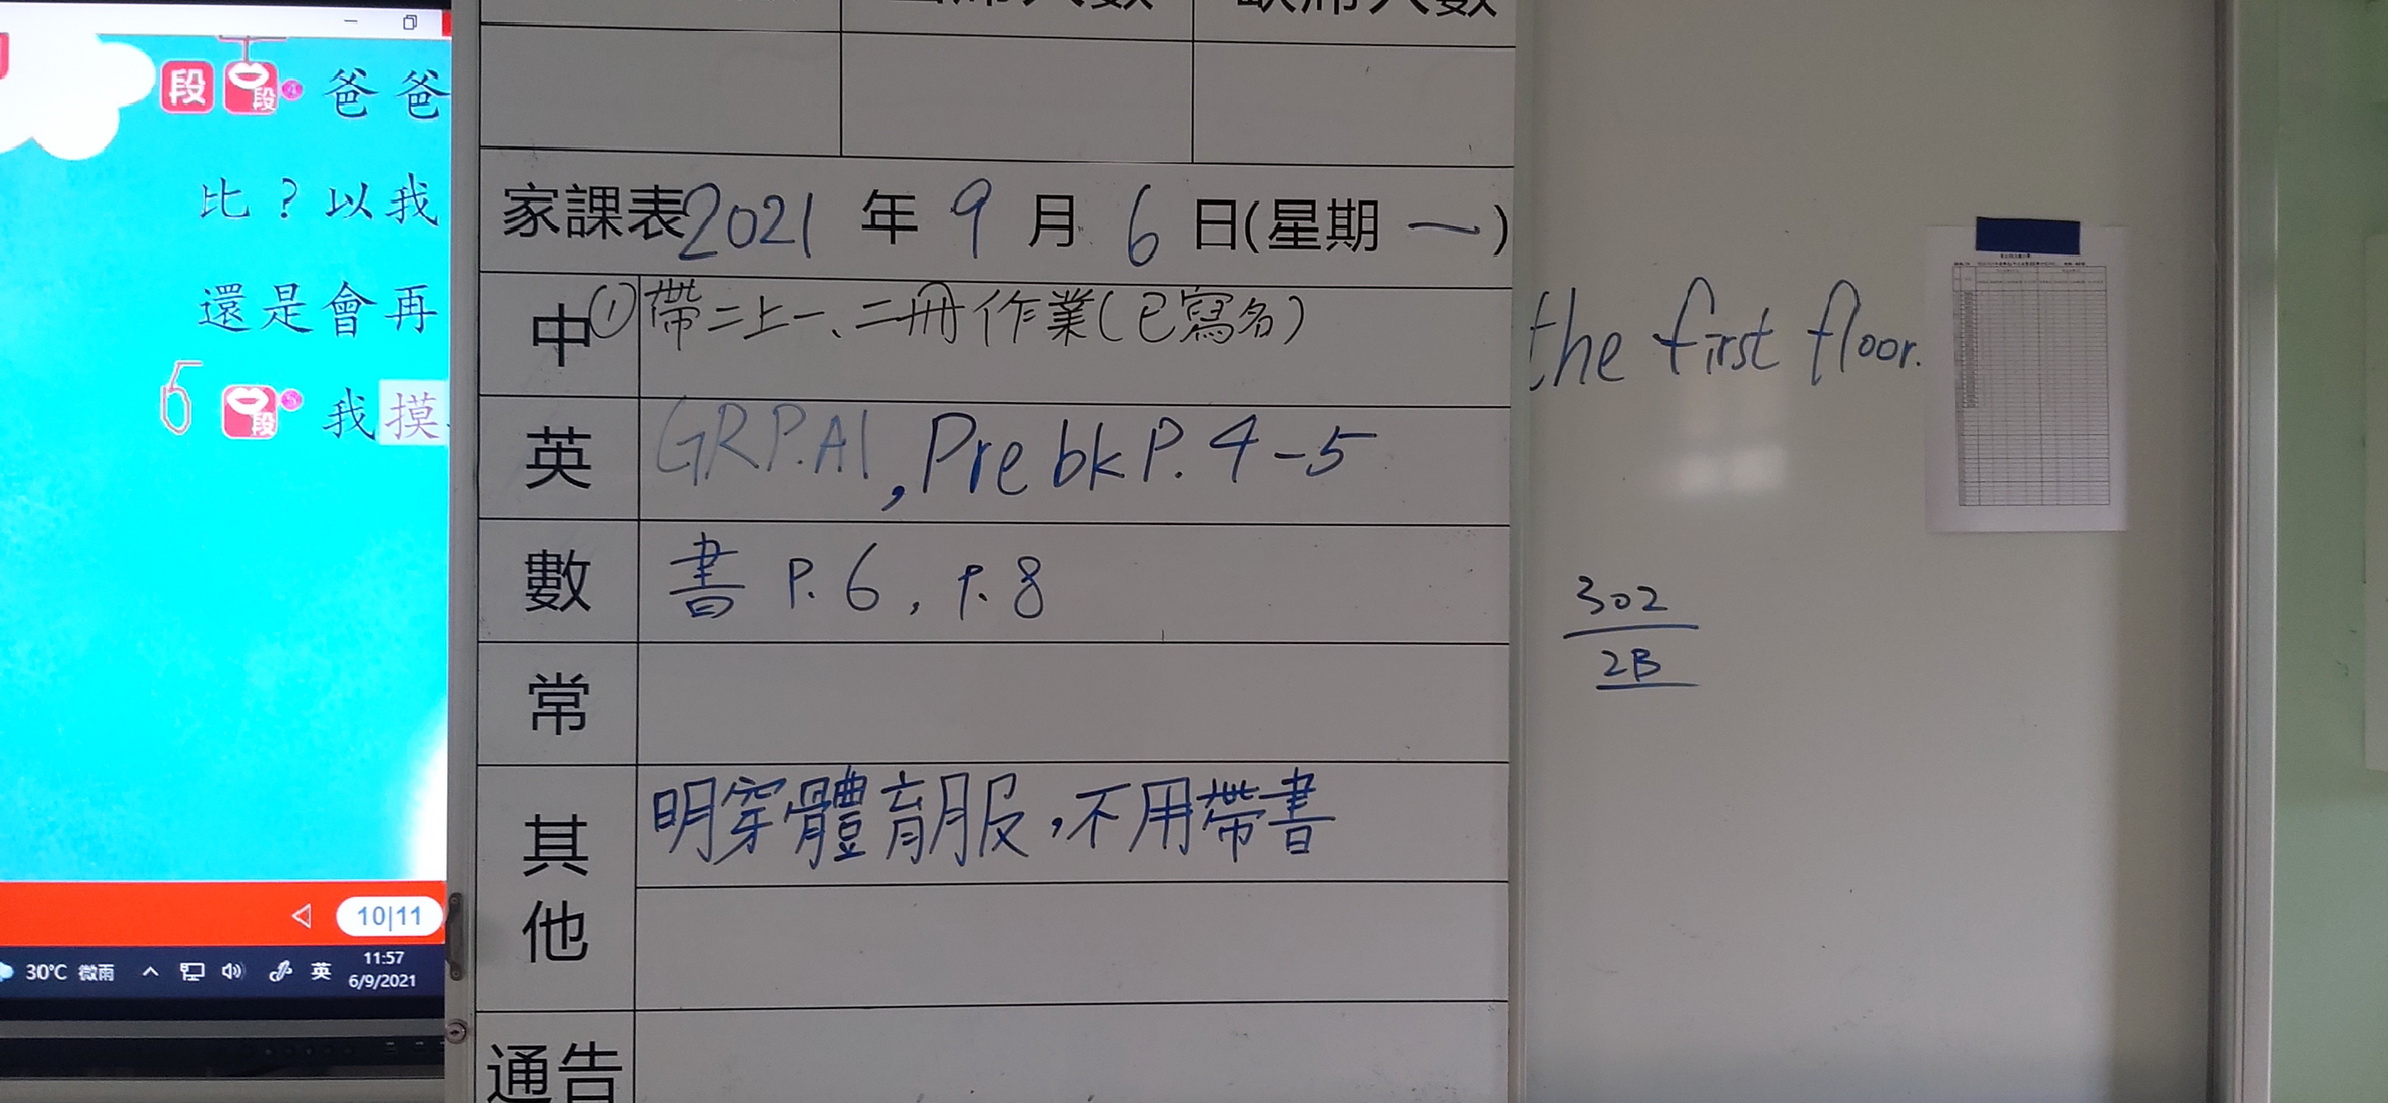 段 段 4 爸爸
比？以我
還是會再
5 段 5 我摸
10|11
30°C 微雨 英 11:57
6/9/2021
家課表2021年9月6日(星期一)
中 ①帶二上一、二冊作業(已寫名)
英 GRP.A1, Pre bk P.4-5
數 書 P.6, P.8
常
其他 明穿體育服,不用帶書
通告
the first floor.
302
2B